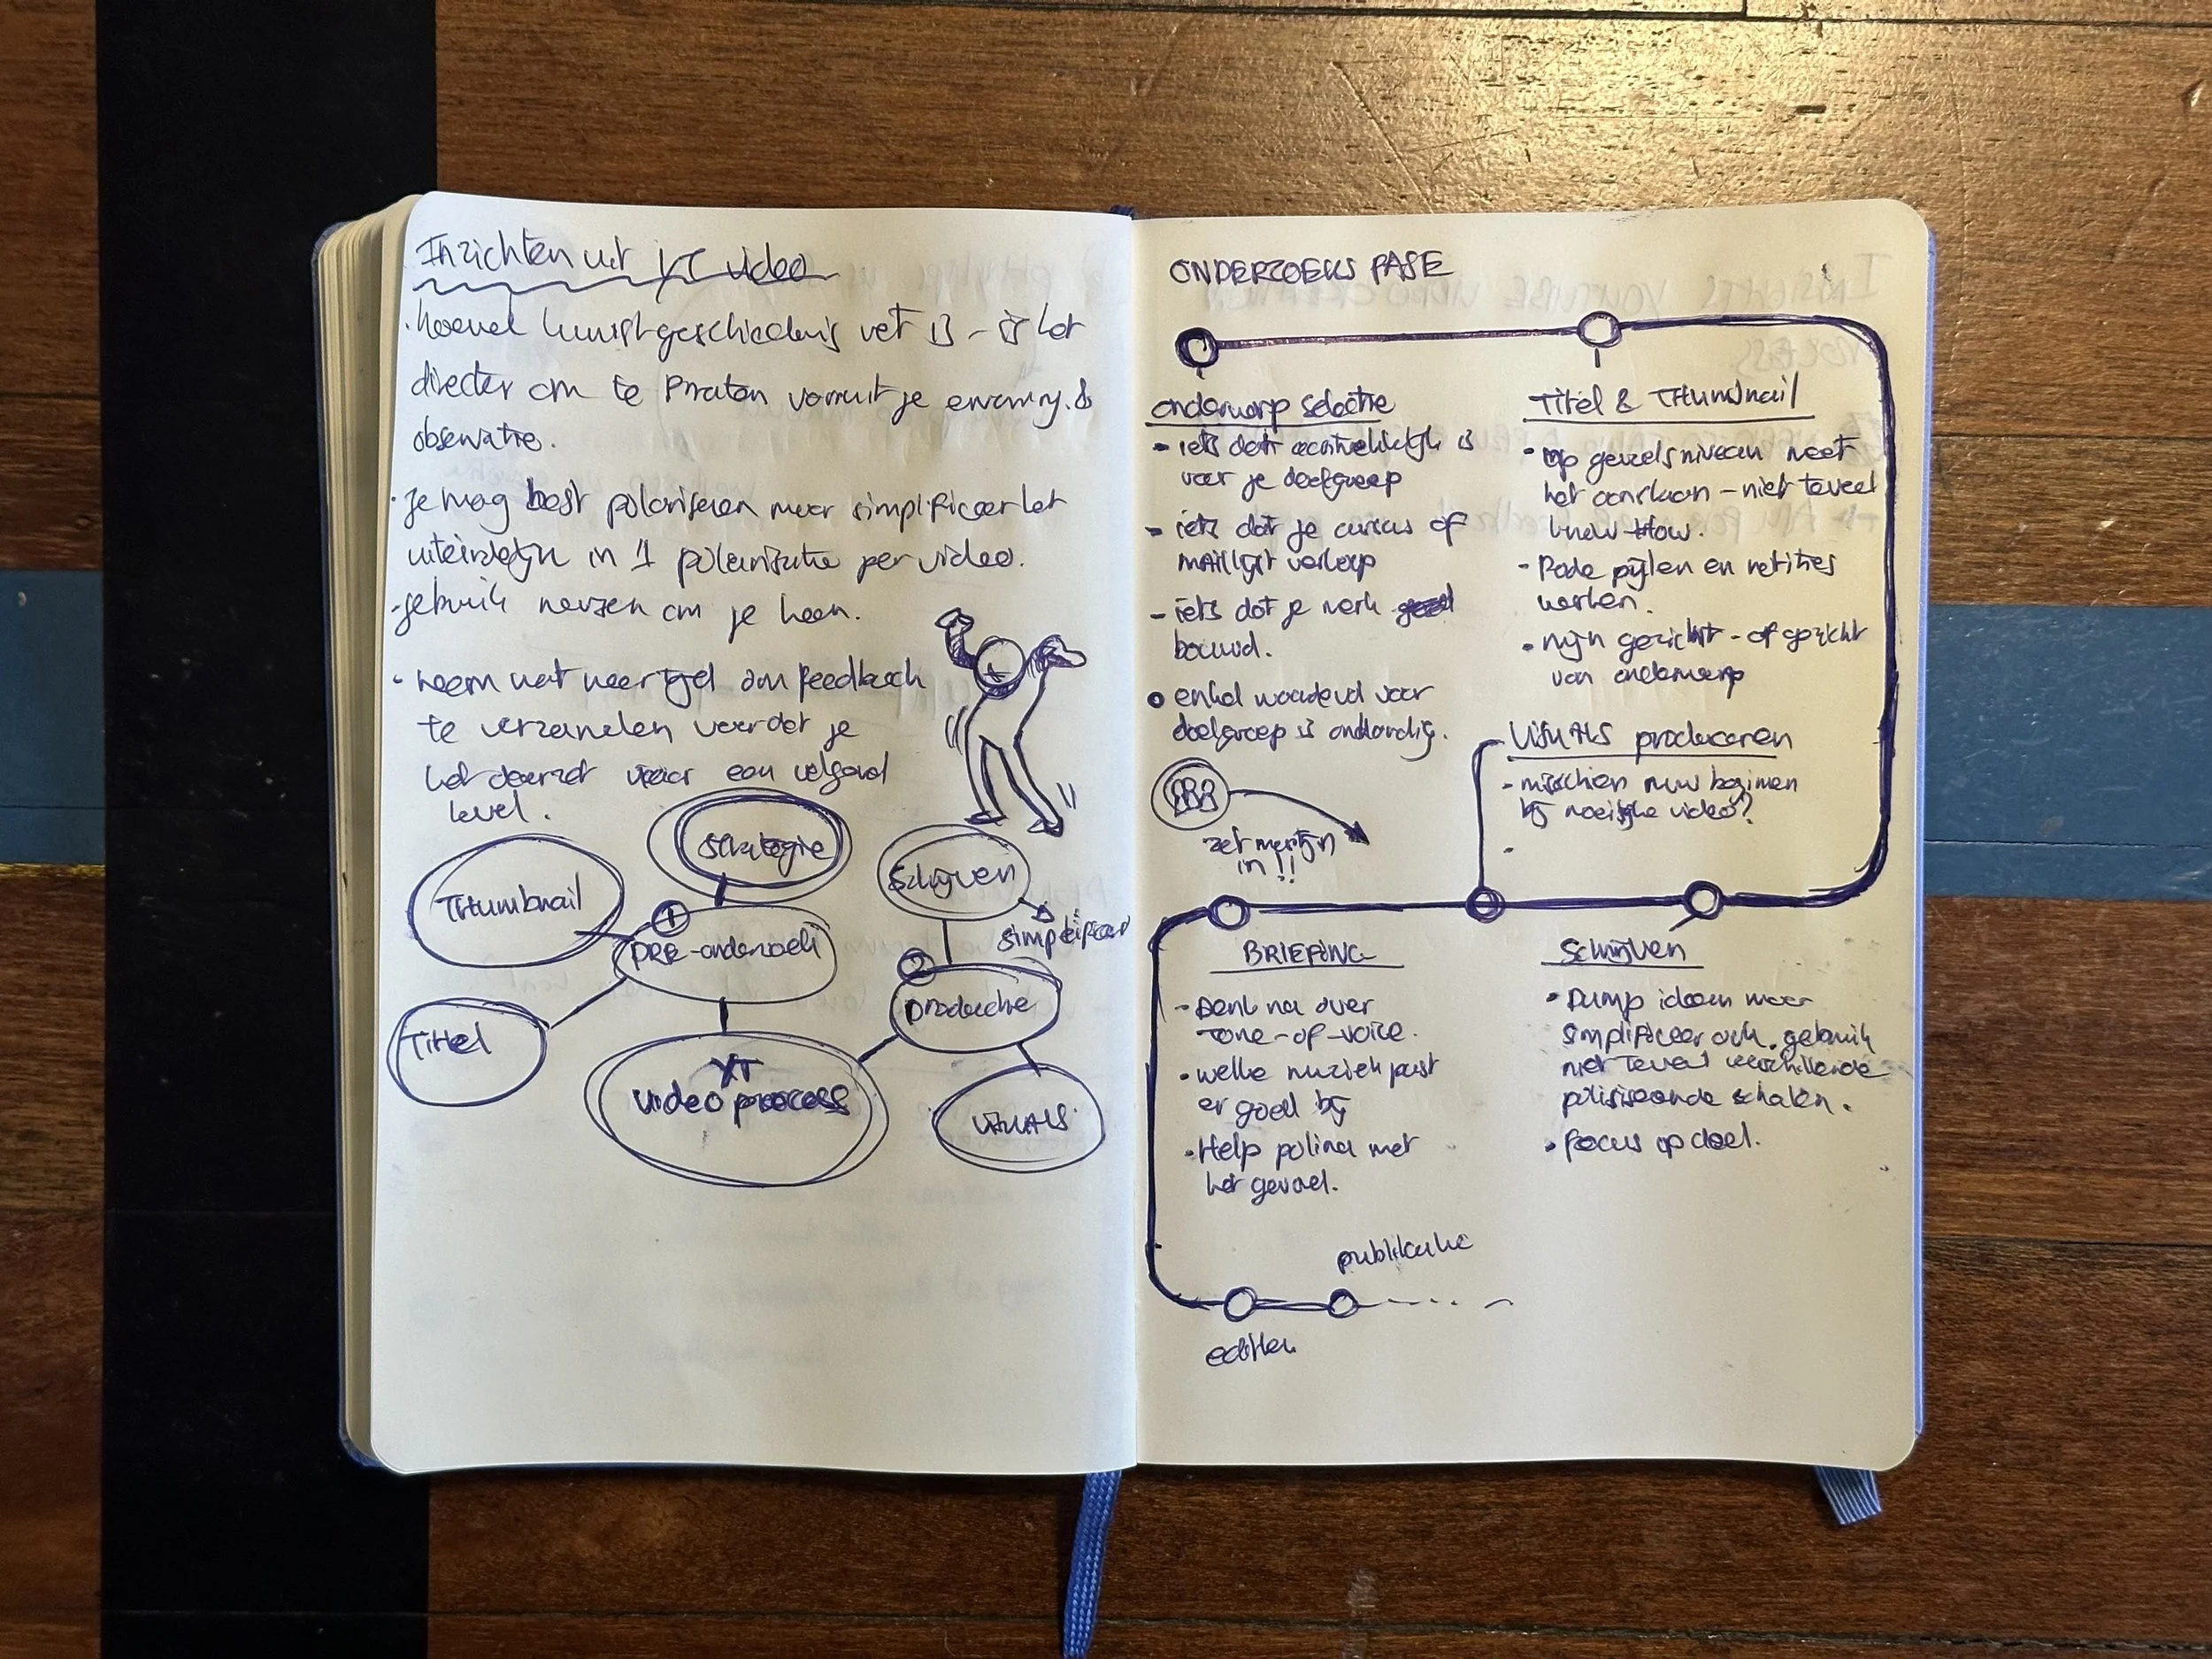 Inzichten uit YT video
· hoewel kunstgeschiedenis vet is - is het
directer om te praten vanuit je ervaring &
observatie.
· Je mag best polariseren maar simplificeer het
uiteindelijk in 1 polarisatie per video.
- gebruik mensen om je heen.
· neem wat meer tijd om feedback
te verzamelen voordat je
het doorzet naar een volgend
level.
Strategie
Schrijven
Thumbnail
simplificeer
1
PRE-onderzoek
2
productie
Titel
YT
video process
VISUALS
ONDERZOEKS FASE
onderwerp selectie
- iets dat aantrekkelijk is
voor je doelgroep
- iets dat je cursus of
maillijst verkoop
- iets dat je merk
bouwd.
enkel waardevol voor
doelgroep is onhandig.
zet martijn
in!!
Titel & Thumbnail
· op gevoelsniveau moet
het aanslaan - niet teveel
know-how.
- Rode pijlen en
werken.
· mijn gezicht - of gezicht
van onderwerp
VISUALS produceren
- misschien nuw beginnen
bij moeilijke video?
BRIEFING
- Denk na over
Tone-of-voice.
· welke muziek past
er goed bij
· Help polina met
het gevoel.
Schrijven
· Dump ideeen maar
simplificeer ook. gebruik
niet teveel verschillende
schalen.
· Focus op doel.
publikatie
editen